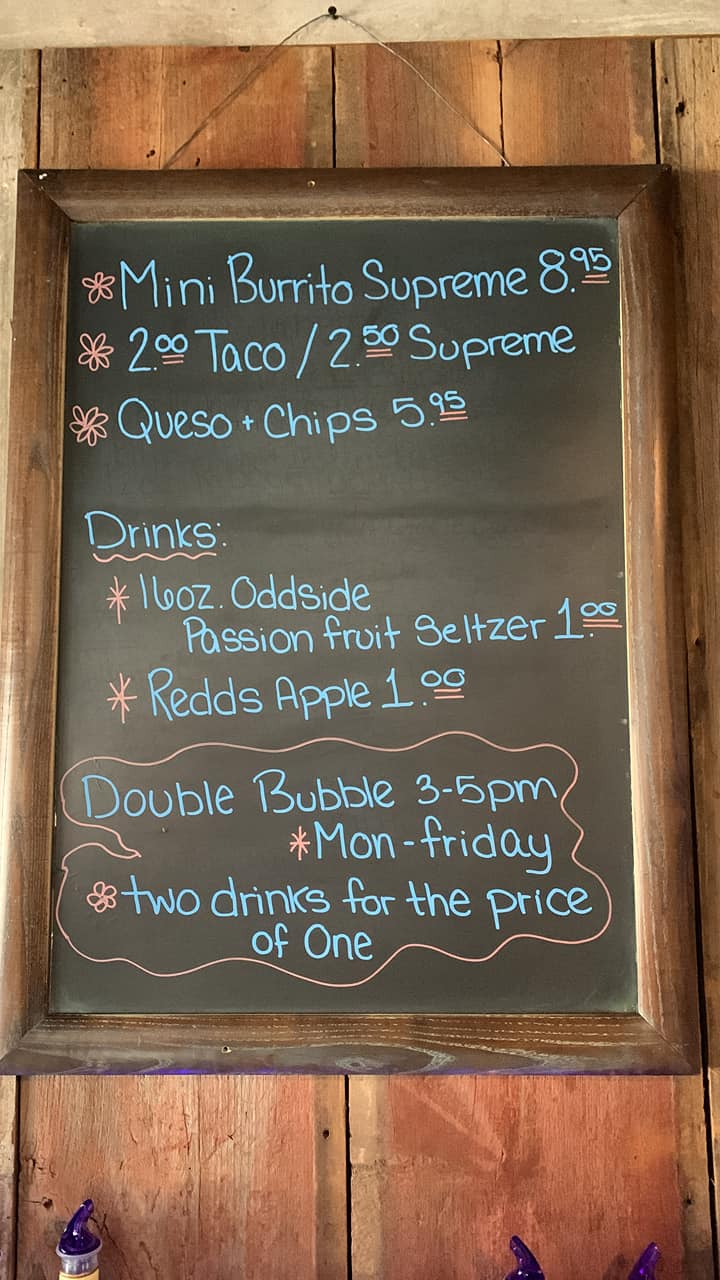 Mini Burrito Supreme 8.95
2.00 Taco / 2.50 Supreme
Queso + Chips 5.95
Drinks:
* 16oz. Oddside
Passion fruit Seltzer 1.00
* Redds Apple 1.00
Double Bubble 3-5pm
* Mon-friday
two drinks for the price
of One